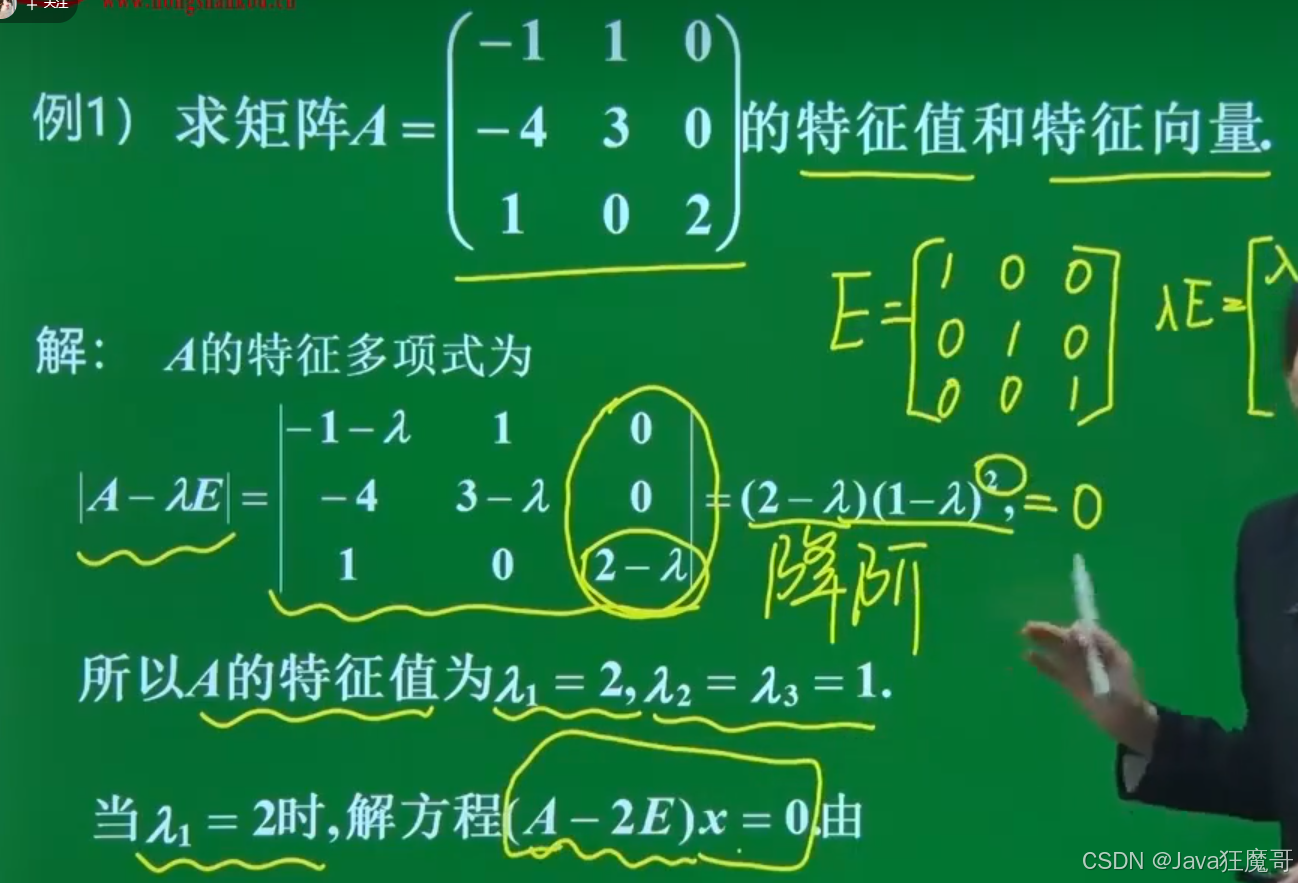 + 关注
例1) 求矩阵A = ( -1 1 0
-4 3 0
1 0 2 ) 的特征值和特征向量.
E = [ 1 0 0
0 1 0
0 0 1 ]
λE = [ λ
解: A的特征多项式为
|A - λE| = | -1-λ 1 0
-4 3-λ 0
1 0 2-λ | = (2-λ)(1-λ)², = 0
降阶
所以A的特征值为λ₁ = 2, λ₂ = λ₃ = 1.
当λ₁ = 2时,解方程(A - 2E)x = 0.由
CSDN @Java狂魔哥